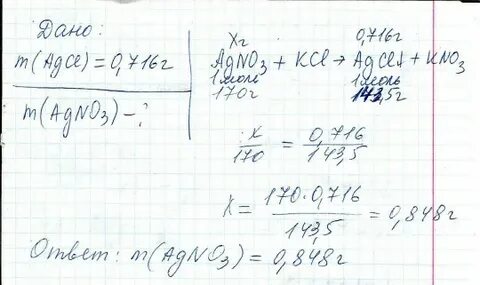 Дано:
m(AgCl)=0,716г
m(AgNO₃)-?
Xг 0,716г
AgNO₃ + KCl → AgCl↓ + KNO₃
1моль 1моль
170г 143,5г
x/170 = 0,716/143,5
X = 170·0,716/143,5 = 0,848г
Ответ: m(AgNO₃) = 0,848г